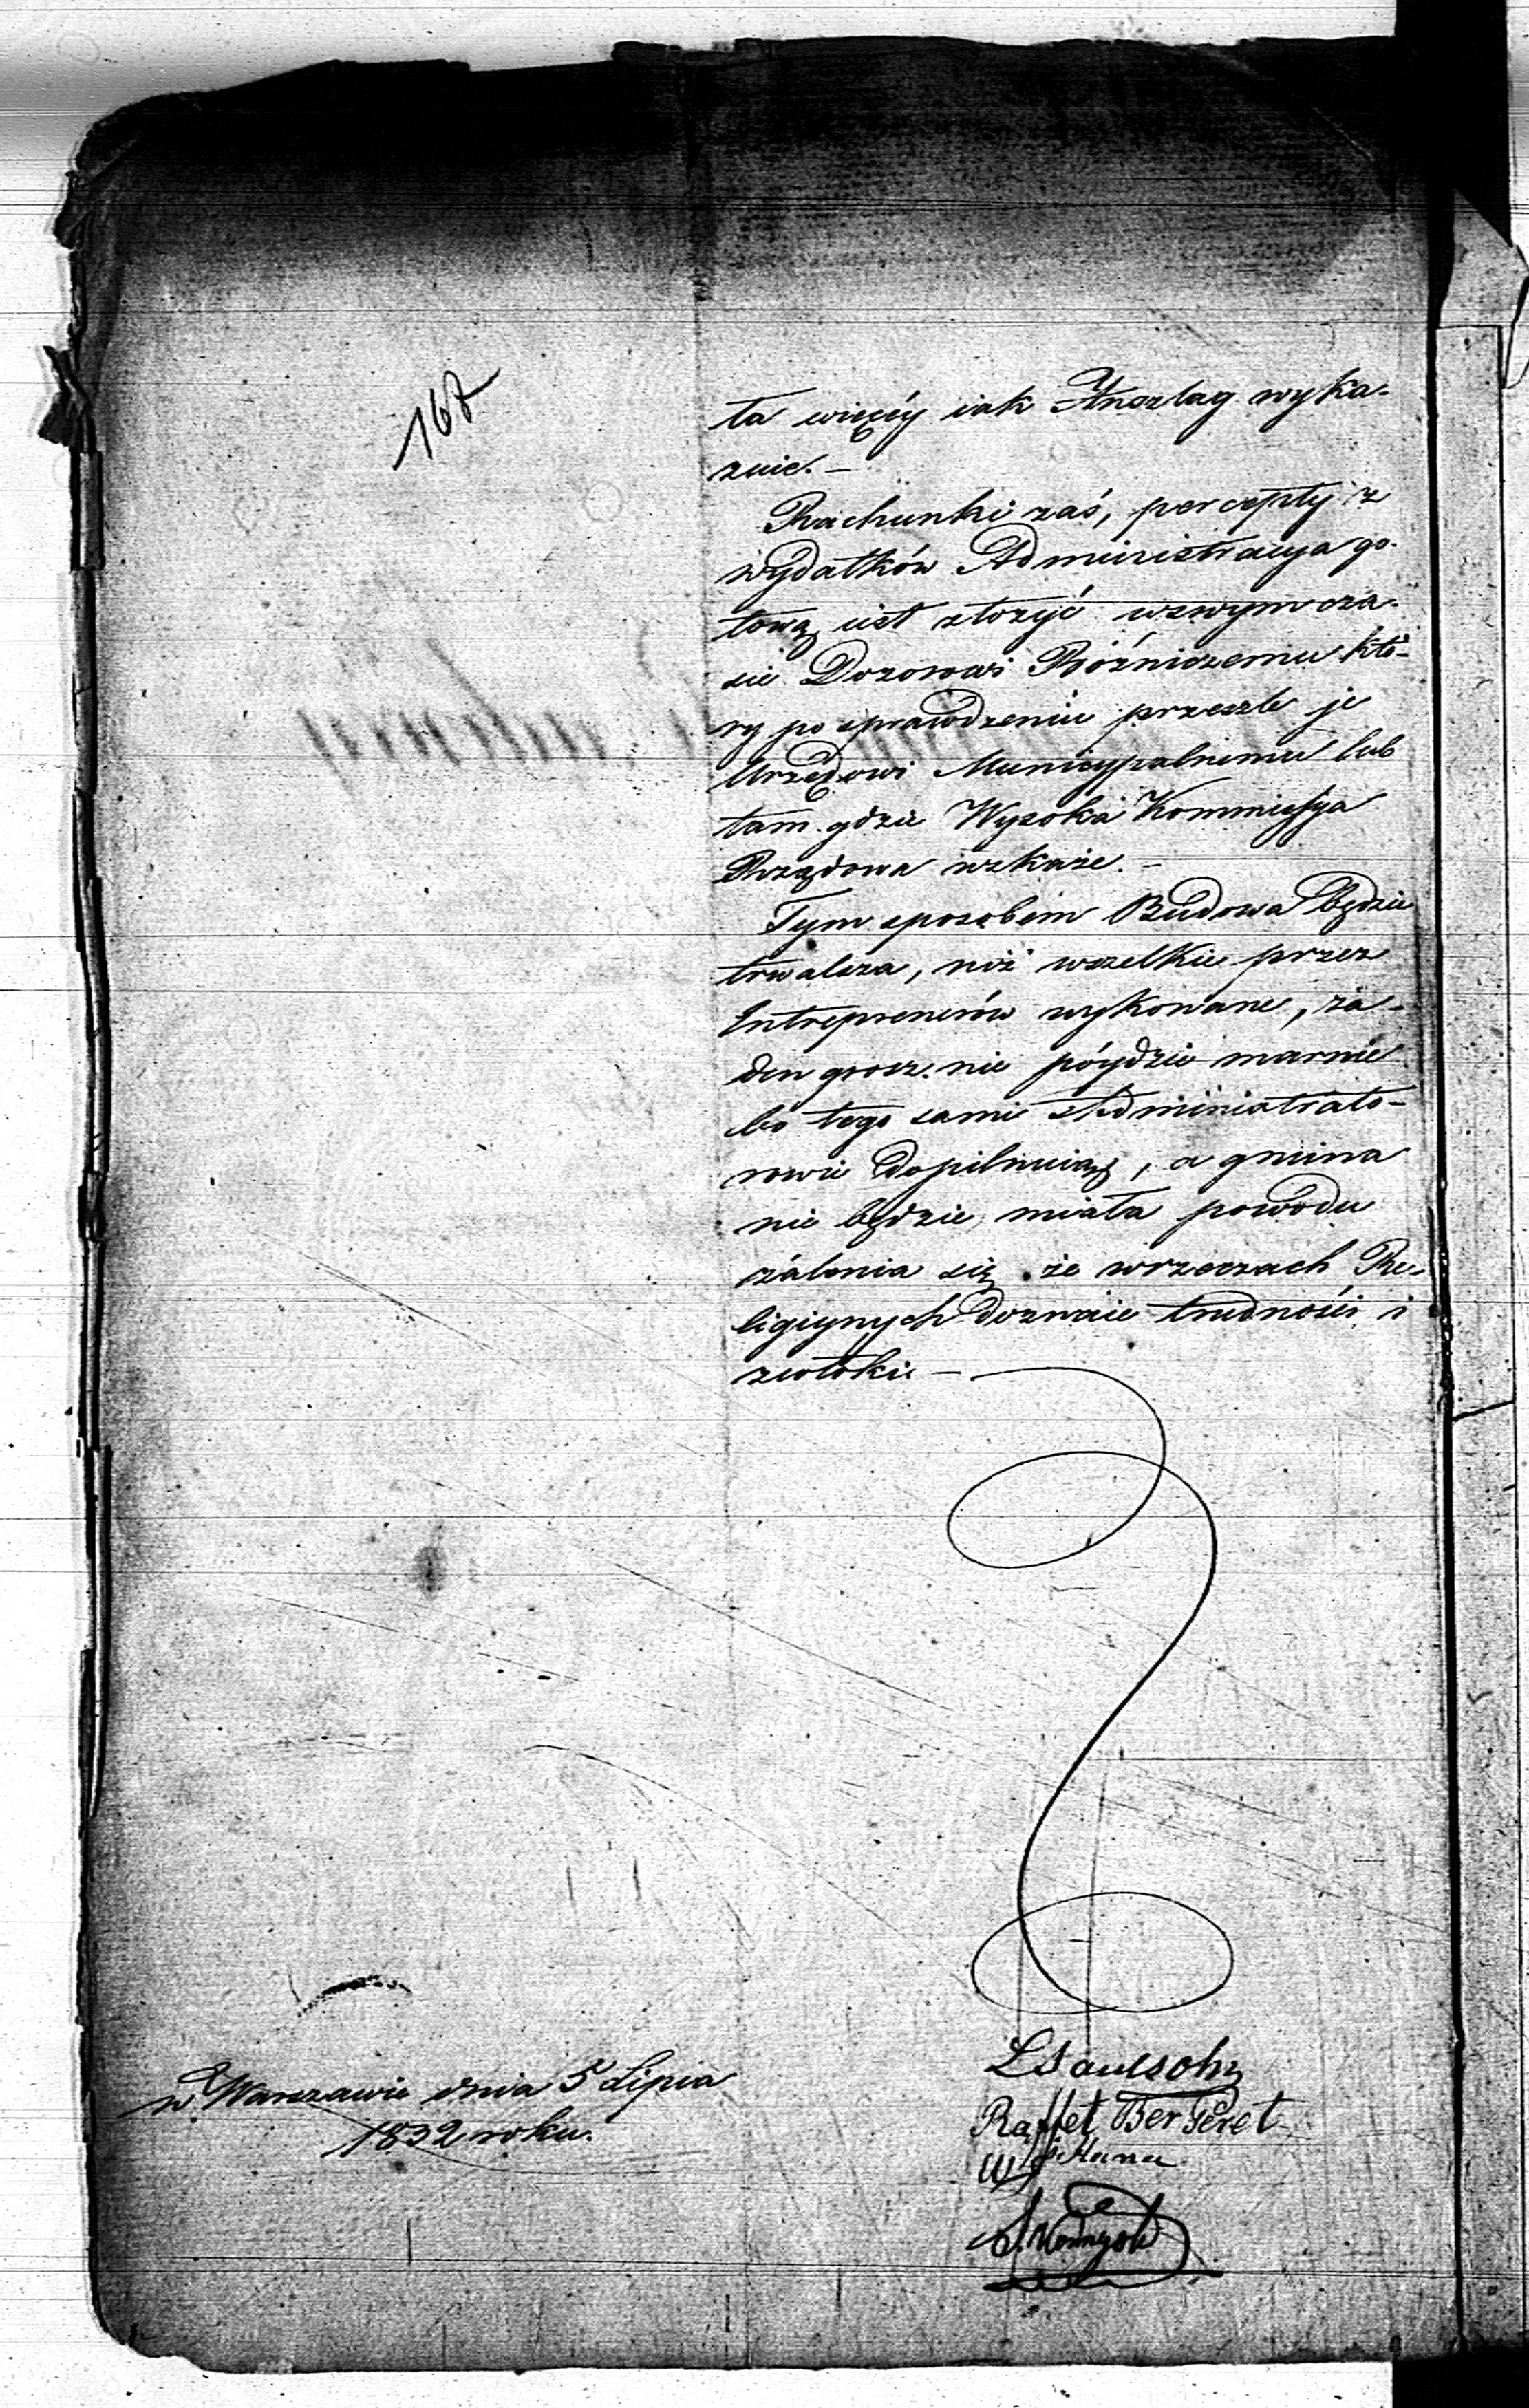 168
ta więcéy iak Anszlag wyka-
zuie. —
Rachunki zaś, percepty z
wydatków Administracya go-
tową iest złożyć wswym cza-
sie Dozorowi Bóźniczemu któ-
ry po sprawdzeniu przeszle je
Urzędowi Municypalnemu lub
tam gdzie Wysoka Kommissya
Rządowa wskaże. —
Tym sposobem Budowa będzie
trwalsza, niż wszelkie przez
Entreprenerów wykonane, ża-
den grosz nie póydzie marnie
bo tego sami Administrato-
rowie dopilnuią, a gmina
nie będzie miała powodu
żalenia się że wrzeczach Re-
ligiynych doznaie trudności i
zwłoki —
LSaulsohn
Raffet Ber Peret
w Warszawie dnia 5 Lipca
1832 roku.